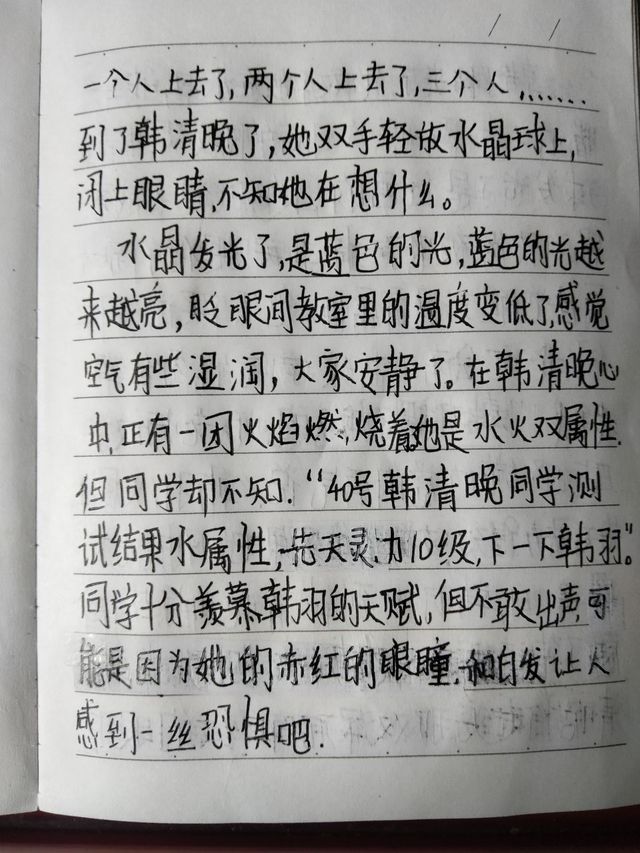 一个人上去了,两个人上去了,三个人,......
到了韩清晚了,她双手轻放水晶球上,
闭上眼睛,不知她在想什么。
水晶发光了,是蓝色的光,蓝色的光越
来越亮,眨眼间教室里的温度变低了,感觉
空气有些湿润,大家安静了。在韩清晚心
中,正有一团火焰燃,烧着。她是水火双属性.
但同学却不知.“40号韩清晚同学测
试结果水属性,先天灵力10级,下一下韩羽”。
同学十分羡慕韩羽的天赋,但不敢出声,可
能是因为她的赤红的眼瞳.和白发让人
感到一丝恐惧吧.